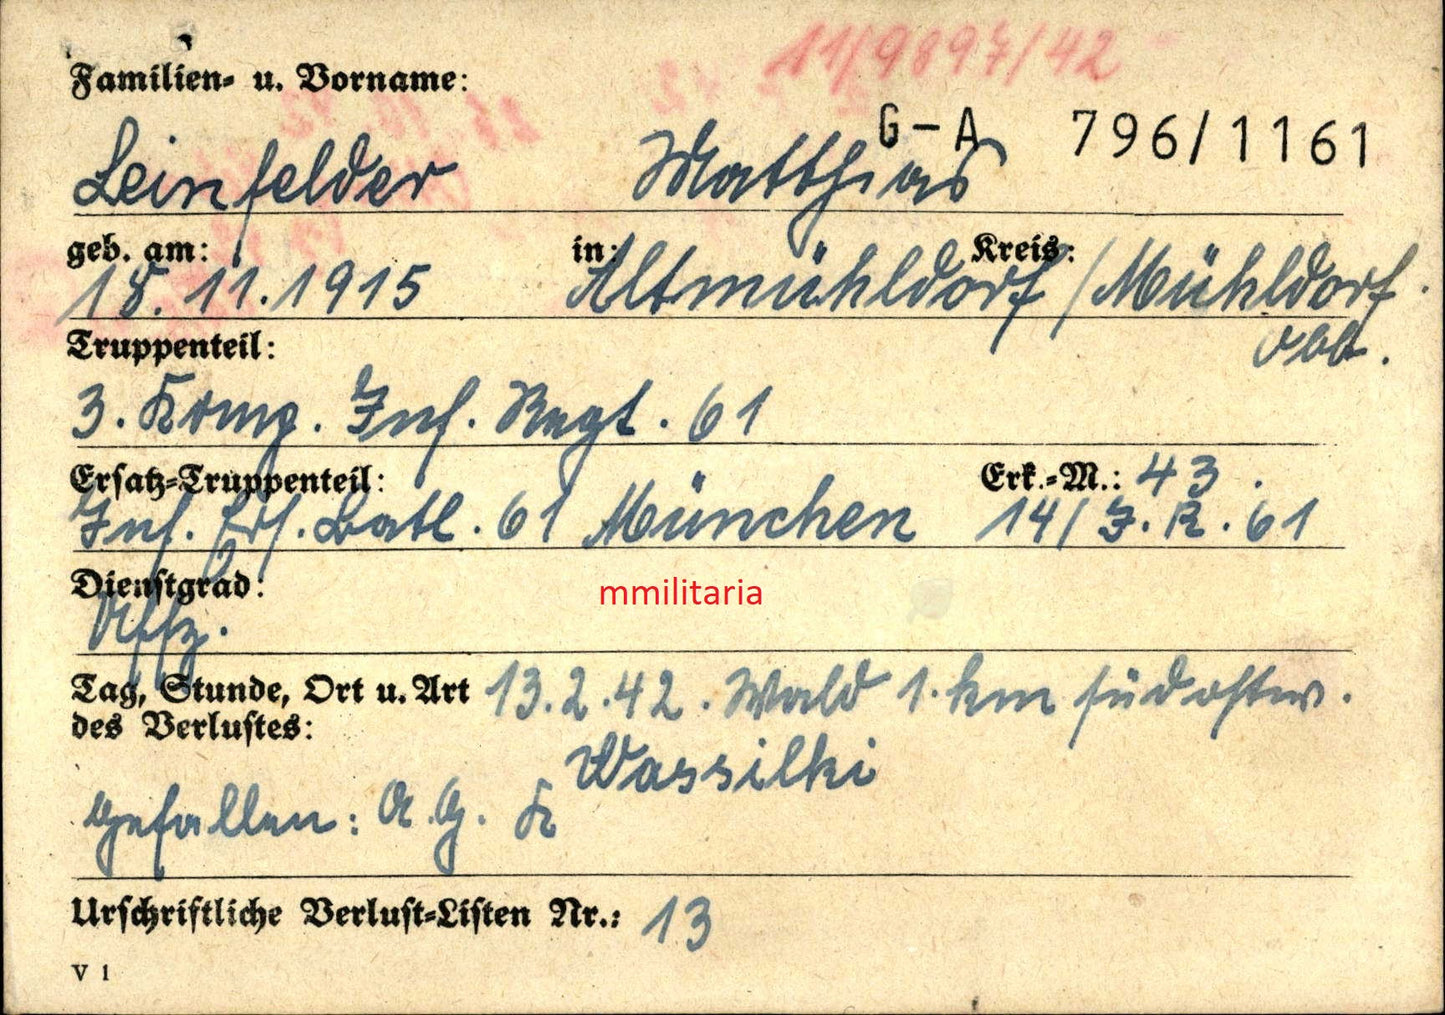 11/9897/42
Familien- u. Vorname:
G-A 796/1161
Leinfelder Matthias
geb. am: in: Kreis:
18.11.1915 Altmühldorf / Mühldorf.
Obb.
Truppenteil:
3. Komp. Inf. Regt. 61
Ersatz-Truppenteil: Erk.-M.: 43.
Inf. Ers. Batl. 61 München 14/ I.R. 61
Dienstgrad:
Uffz.
mmilitaria
Tag, Stunde, Ort u. Art 13.2.42. Wald 1. km südostw.
des Verlustes:
Wassilki
gefallen: A.G. K
Urschriftliche Verlust-Listen Nr.: 13
V 1